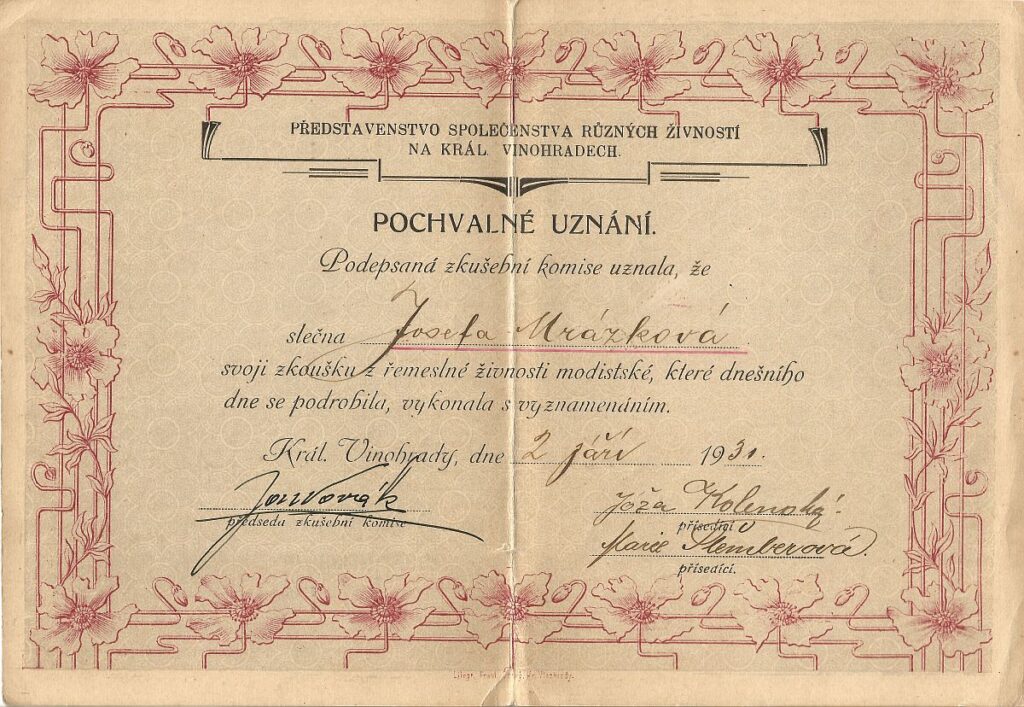 PŘEDSTAVENSTVO SPOLEČENSTVA RŮZNÝCH ŽIVNOSTÍ
NA KRÁL. VINOHRADECH.
POCHVALNÉ UZNÁNÍ.
Podepsaná zkušební komise uznala, že
slečna Josefa Mrázková
svoji zkoušku z řemeslné živnosti modistské, které dnešního
dne se podrobila, vykonala s vyznamenáním.
Král. Vinohrady, dne 2 září 1931.
Jan Novák
předseda zkušební komise
Jóža
přísedící
Marie Šlemberová.
přísedící.